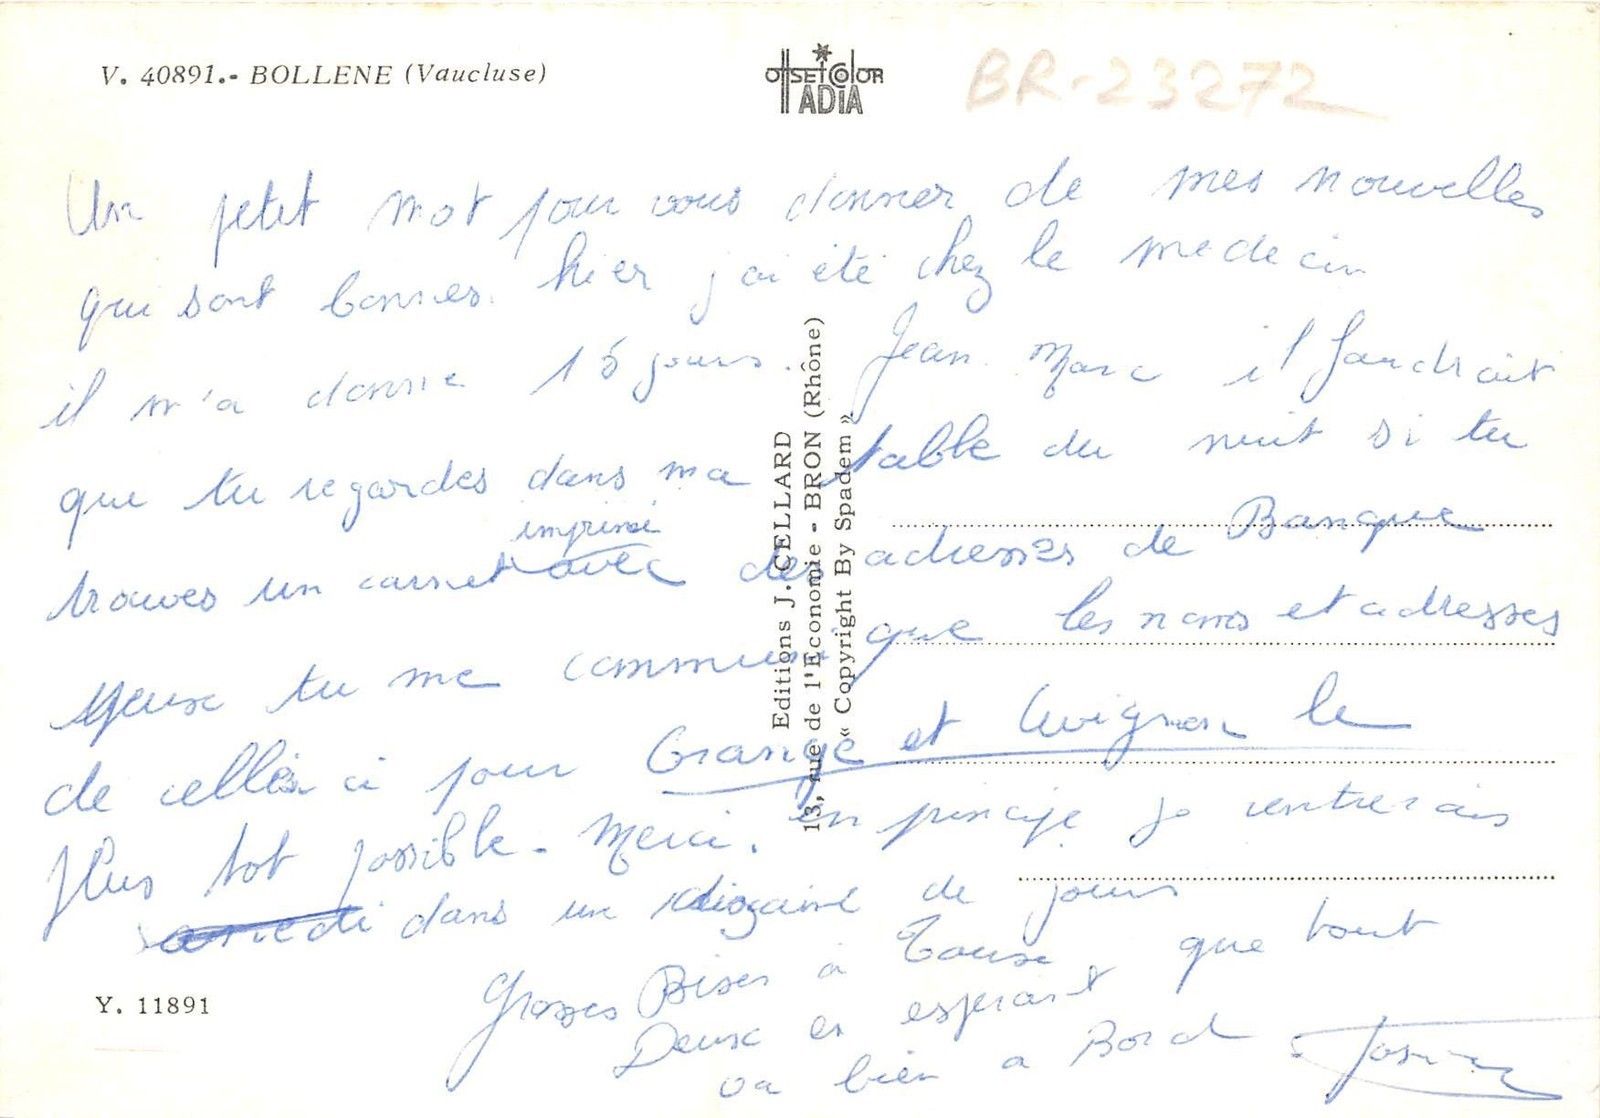 V. 40891.- BOLLENE (Vaucluse)
OffSET COlOR
ADIA
BR-23272
Un petit mot pour vous donner de mes nouvelles
qui sont bonnes. hier j'ai été chez le medecin
il m'a donné 15 jours. Jean Marc il faudrait
que tu regardes dans ma table du nuit si tu
imprimé
trouves un carnet avec des adresses de Banque
peux tu me communique les noms et adresses
de celles ci pour Orange et Avignon le
plus tot possible. Merci. en principe je rentrerais
samedi dans un dizaine de jours
Grosses Bises a Tous
Deux en esperant que tout
va bien a Bord
Editions J. CELLARD
13, rue de l'Economie - BRON (Rhône)
« Copyright By Spadem »
Y. 11891